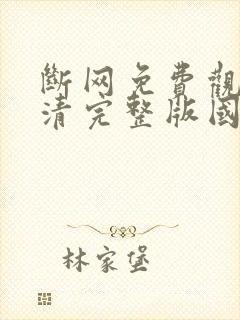 斷网免費觀
清完整版國
林家堡